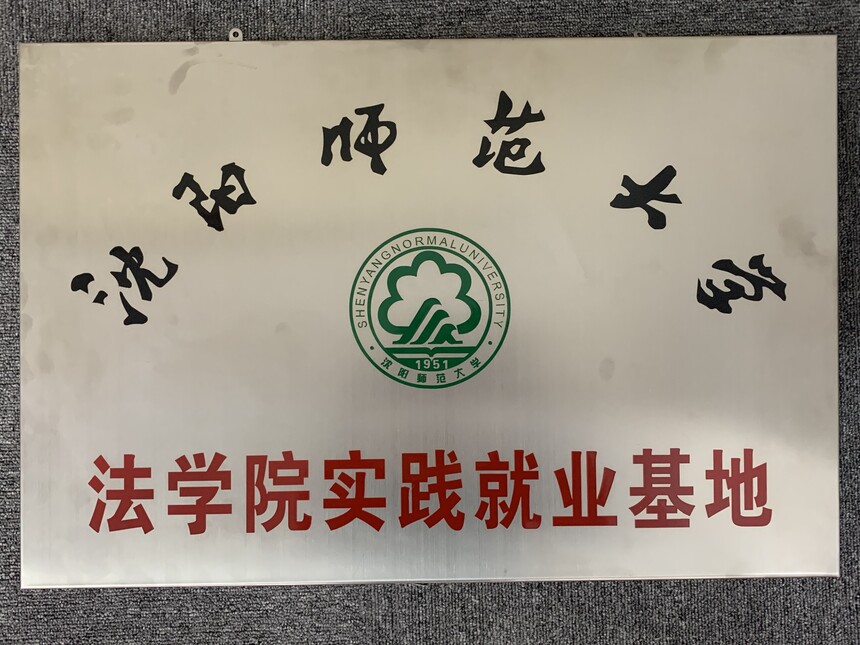 沈阳师范大学
SHENYANGNORMALUNIVERSITY
1951
沈阳师范大学
法学院实践就业基地